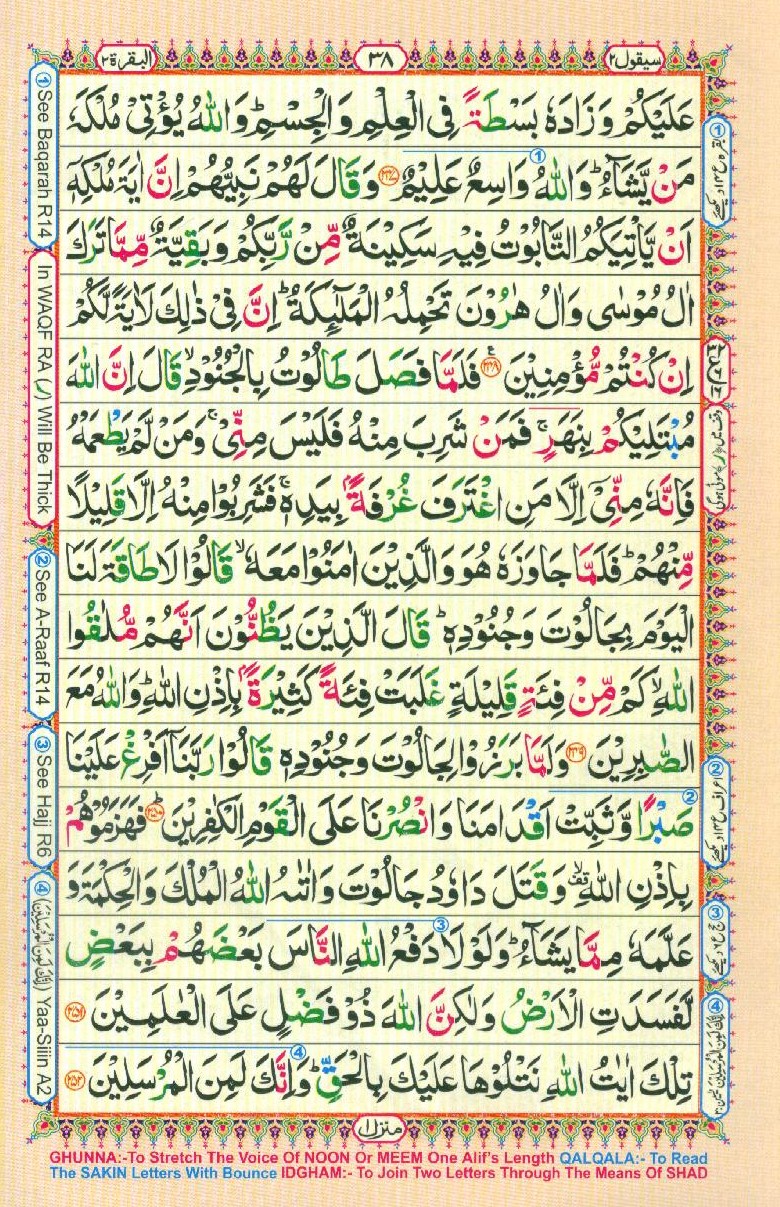 سيقول٢ ٣٨ البقرة٢
عَلَيْكُمْ وَزَادَهٗ بَسْطَةً فِى الْعِلْمِ وَالْجِسْمِ ؕ وَاللّٰهُ يُؤْتِىْ مُلْكَهٗ
مَنْ يَّشَآءُ ؕ وَاللّٰهُ وَاسِعٌ عَلِيْمٌ ﴿۲۴۷﴾ وَقَالَ لَهُمْ نَبِيُّهُمْ اِنَّ اٰيَةَ مُلْكِهٖۤ
اَنْ يَّاْتِيَكُمُ التَّابُوْتُ فِيْهِ سَكِيْنَةٌ مِّنْ رَّبِّكُمْ وَبَقِيَّةٌ مِّمَّا تَرَكَ
اٰلُ مُوْسٰى وَاٰلُ هٰرُوْنَ تَحْمِلُهُ الْمَلٰٓئِكَةُ ؕ اِنَّ فِىْ ذٰلِكَ لَاٰيَةً لَّكُمْ
اِنْ كُنْتُمْ مُّؤْمِنِيْنَ ﴿۲۴۸﴾ فَلَمَّا فَصَلَ طَالُوْتُ بِالْجُنُوْدِ ۙ قَالَ اِنَّ اللّٰهَ
مُبْتَلِيْكُمْ بِنَهَرٍ ۚ فَمَنْ شَرِبَ مِنْهُ فَلَيْسَ مِنِّىْ ۚ وَمَنْ لَّمْ يَطْعَمْهُ
فَاِنَّهٗ مِنِّىْۤ اِلَّا مَنِ اغْتَرَفَ غُرْفَةًۢ بِيَدِهٖ ۚ فَشَرِبُوْا مِنْهُ اِلَّا قَلِيْلًا
مِّنْهُمْ ؕ فَلَمَّا جَاوَزَهٗ هُوَ وَالَّذِيْنَ اٰمَنُوْا مَعَهٗ ۙ قَالُوْا لَا طَاقَةَ لَنَا
الْيَوْمَ بِجَالُوْتَ وَجُنُوْدِهٖ ؕ قَالَ الَّذِيْنَ يَظُنُّوْنَ اَنَّهُمْ مُّلٰقُوا
اللّٰهِ ۙ كَمْ مِّنْ فِئَةٍ قَلِيْلَةٍ غَلَبَتْ فِئَةً كَثِيْرَةًۢ بِاِذْنِ اللّٰهِ ؕ وَاللّٰهُ مَعَ
الصّٰبِرِيْنَ ﴿۲۴۹﴾ وَلَمَّا بَرَزُوْا لِجَالُوْتَ وَجُنُوْدِهٖ قَالُوْا رَبَّنَاۤ اَفْرِغْ عَلَيْنَا
صَبْرًا وَّثَبِّتْ اَقْدَامَنَا وَانْصُرْنَا عَلَى الْقَوْمِ الْكٰفِرِيْنَ ﴿۲۵۰﴾ فَهَزَمُوْهُمْ
بِاِذْنِ اللّٰهِ ۙ وَقَتَلَ دَاوٗدُ جَالُوْتَ وَاٰتٰىهُ اللّٰهُ الْمُلْكَ وَالْحِكْمَةَ وَ
عَلَّمَهٗ مِمَّا يَشَآءُ ؕ وَلَوْلَا دَفْعُ اللّٰهِ النَّاسَ بَعْضَهُمْ بِبَعْضٍ
لَّفَسَدَتِ الْاَرْضُ وَلٰكِنَّ اللّٰهَ ذُوْ فَضْلٍ عَلَى الْعٰلَمِيْنَ ﴿۲۵۱﴾
تِلْكَ اٰيٰتُ اللّٰهِ نَتْلُوْهَا عَلَيْكَ بِالْحَقِّ ؕ وَاِنَّكَ لَمِنَ الْمُرْسَلِيْنَ ﴿۲۵۲﴾
① See Baqarah R14
In WAQF RA (ر) Will Be Thick
② See A-Raaf R14
③ See Hajj R6
④ (اِنَّكَ لَمِنَ الْمُرْسَلِيْنَ) Yaa-Siiin A2
منزل١
GHUNNA:-To Stretch The Voice Of NOON Or MEEM One Alif's Length QALQALA:- To Read
The SAKIN Letters With Bounce IDGHAM:- To Join Two Letters Through The Means Of SHAD